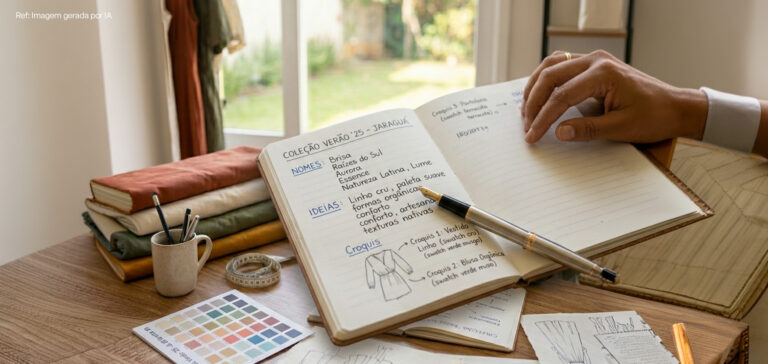 Ref: Imagem gerada por IA
COLEÇÃO VERÃO '25 - JARAGUÁ
NOMES: Brisa
Raízes do Sul
Aurora
Essence
Natureza Latina, Lume
IDEIAS: Linho cru, paleta suave
formas orgânicas
conforto
conforto, artesanal
texturas nativas
Croquis
Croquis 1: Vestido
Linho (swatch cru)
(swatch verde musgo)
Croquis 2: Blusa Orgânica
(swatch verde musgo)
Croquis 3:
(swatch terracota